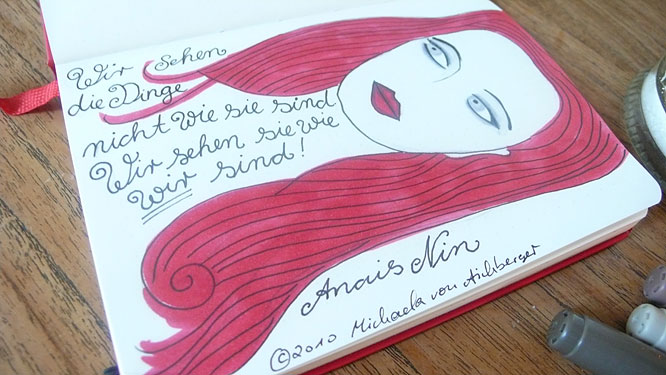 Wir sehen
die Dinge
nicht wie sie sind
Wir sehen sie wie
Wir sind!
Anais Nin
©2010 Michaela von Aichberger